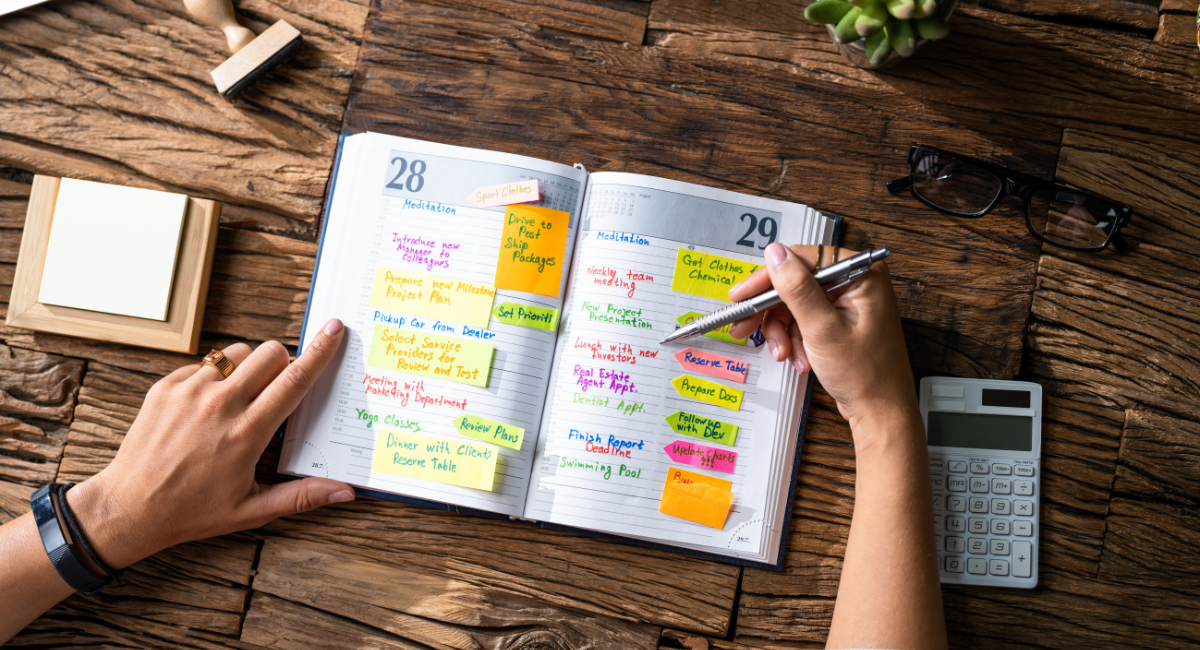 28
Sport Clothes
Meditation
Drive to
Post
Ship
Packages
Introduce new
Manager to
Colleagues
Prepare new Milestone
Project Plan
Set Prioriti
Pickup Car from Dealer
Select Service
Providers for
Review and Test
Meeting with
Marketing Department
Yoga Classes
Review Plans
Dinner with Clients
Reserve Table
28.7.
29
August
Meditation
Get Clothes
Chemical
Weekly team
meeting
New Project
Presentation
Lunch with new
Investors
Reserve Table
Real Estate
Agent Appt.
Prepare Docs
Dentist Appt.
Followup
with Dev
Finish Report
Deadline
Update Charts
Swimming Pool
29.7.
MR
M-
M+
÷
%
√
7
8
9
×
4
5
6
-
1
2
3
+
0
.
=